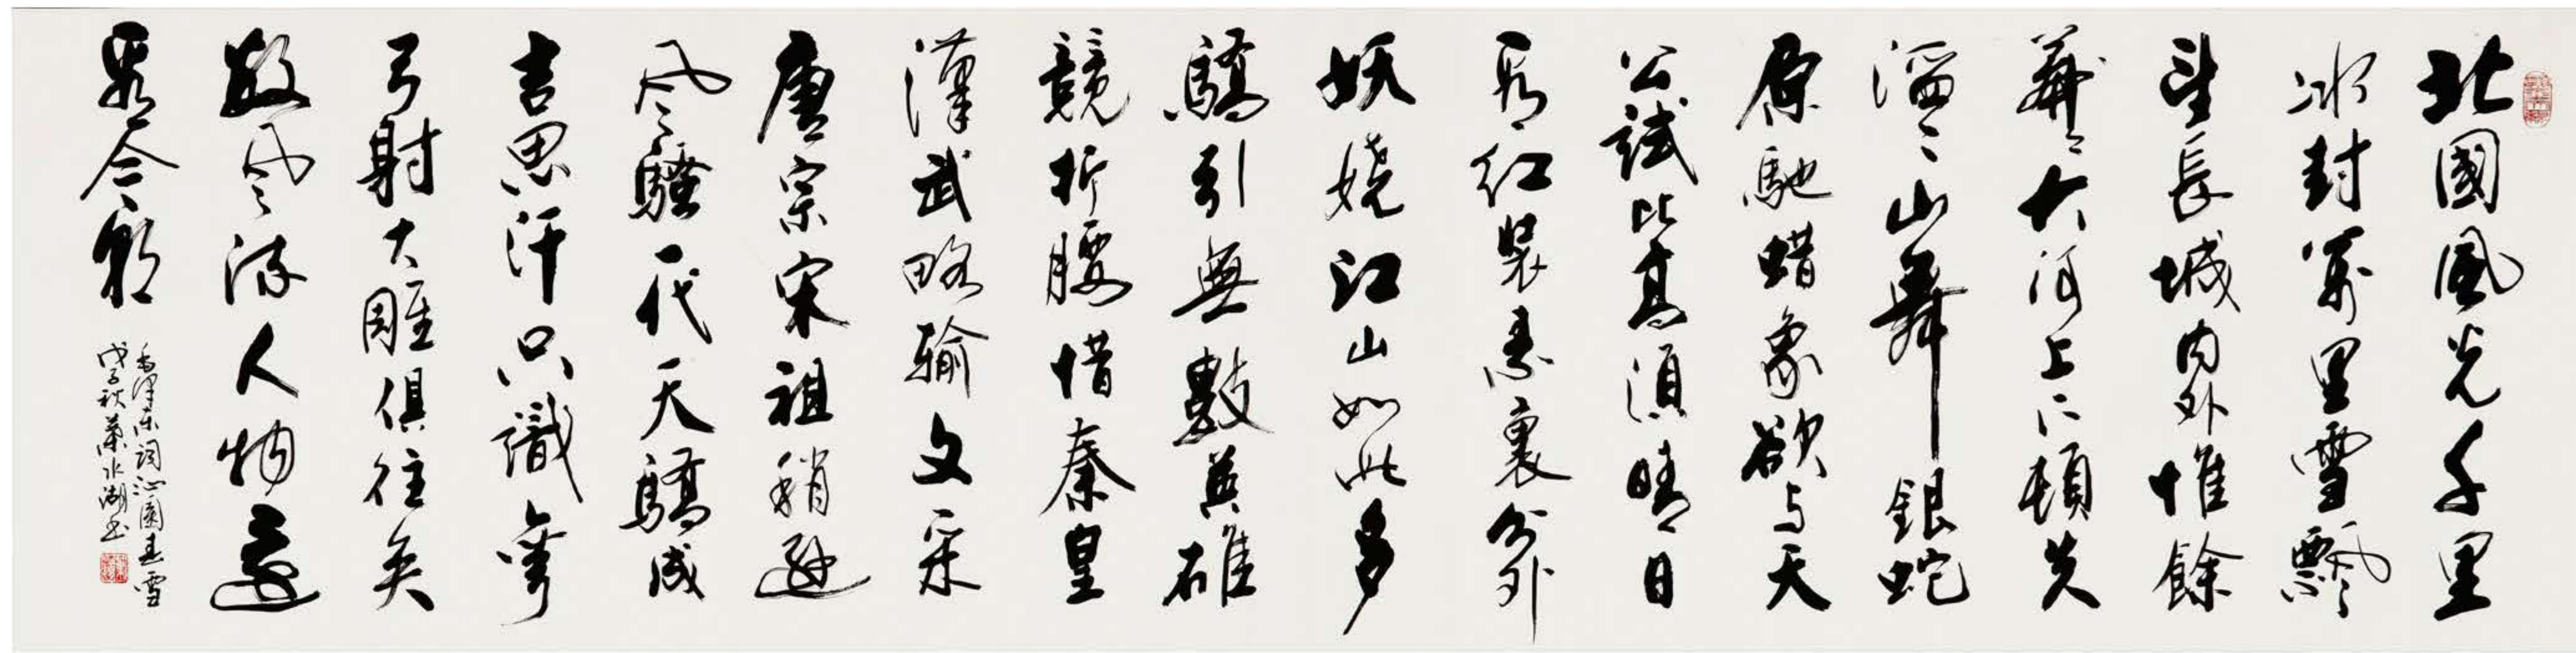 北國風光千里
冰封萬里雪飄
望長城内外惟餘
莽〻大河上下頓失
滔〻山舞銀蛇
原馳蜡象欲与天
公試比高須晴日
看红裝素裹分外
妖娆江山如此多
驕引無數英雄
競折腰惜秦皇
漢武略输文采
唐宗宋祖稍遜
风騷一代天驕成
吉思汗只識彎
弓射大雕俱往矣
數风流人物還
看今朝
毛澤东詞沁園春雪
戊子秋葉水湖书